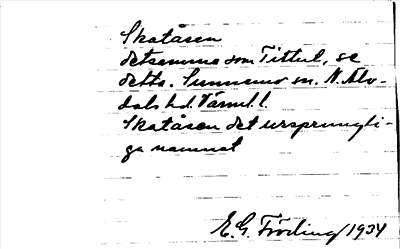 Skatåsen
detsamma som Tittul, se
detta. Sunnemo sn. N. Älv-
dals hd. Värml. l.
Skatåsen det ursprungli-
ga namnet
E. G. Fröding 1934